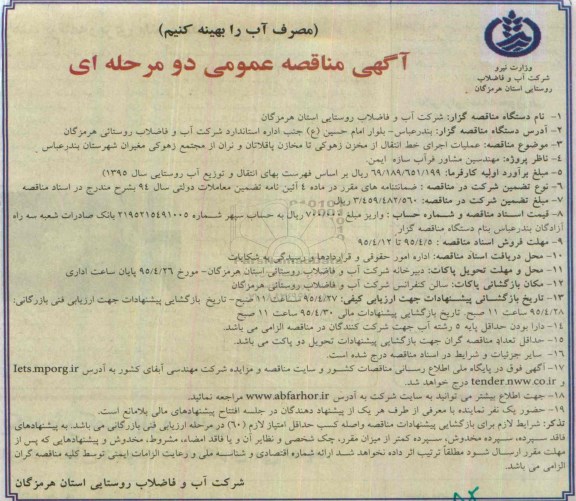 (مصرف آب را بهینه کنیم)
آگهی مناقصه عمومی دو مرحله ای
وزارت نیرو
شرکت آب و فاضلاب
روستایی استان هرمزگان
۱- نام دستگاه مناقصه گزار: شرکت آب و فاضلاب روستایی استان هرمزگان
۲- آدرس دستگاه مناقصه گزار: بندرعباس- بلوار امام حسین (ع) جنب اداره استاندارد شرکت آب و فاضلاب روستائی هرمزگان
۳- موضوع مناقصه: عملیات اجرای خط انتقال از مخزن زهوکی تا مخازن پاقلاتان و نران از مجتمع زهوکی مغیران شهرستان بندرعباس
۴- ناظر پروژه: مهندسین مشاور فرآب سازه ایمن.
۵- مبلغ برآورد اولیه کارفرما: ۶۹/۱۸۹/۶۵۱/۱۹۹ ریال بر اساس فهرست بهای انتقال و توزیع آب روستایی سال ۱۳۹۵)
۶- نوع تضمین شرکت در مناقصه : ضمانتنامه های مقرر در ماده ۴ آئین نامه تضمین معاملات دولتی سال ۹۴ بشرح مندرج در اسناد مناقصه
۷- مبلغ تضمین شرکت در مناقصه: ۳/۴۵۹/۴۸۲/۵۶۰ ریال
۸- قیمت اسناد مناقصه و شماره حساب : واریز مبلغ ریال به حساب سپهر شماره ۲۱۹۵۲۱۵۴۹۱۰۰۵ نزد بانک صادرات شعبه سه راه
آزادگان بندرعباس بنام دستگاه مناقصه گزار
۹- مهلت فروش اسناد مناقصه : ۹۵/۴/۵ تا ۹۵/۴/۱۲
۱۰- محل دریافت اسناد مناقصه: اداره امور حقوقی و قراردادها و رسیدگی به شکایات
۱۱- محل و مهلت تحویل پاکات: دبیرخانه شرکت آب و فاضلاب روستائی استان هرمزگان- مورخ ۹۵/۴/۲۶ پایان ساعت اداری
۱۲- مکان بازگشائی پاکات: سالن کنفرانس شرکت آب و فاضلاب روستائی هرمزگان
۱۳- تاریخ بازگشائی پیشنهادات جهت ارزیابی کیفی: ۹۵/۴/۲۷ ساعت ۱۱ صبح- تاریخ بازگشایی پیشنهادات جهت ارزیابی فنی بازرگانی:
۹۵/۴/۲۸ ساعت ۱۱ صبح. تاریخ بازگشایی پیشنهادات مالی ۹۵/۴/۳۰ ساعت ۱۱ صبح
۱۴- دارا بودن حداقل پایه ۵ رشته آب جهت شرکت کنندگان در مناقصه الزامی می باشد.
۱۵- حداقل تعداد مناقصه گران جهت بازگشایی پیشنهادات تحویل دو پاکت می باشد.
۱۶- سایر جزئیات و شرایط در اسناد مناقصه درج شده است.
۱۷- آگهی فوق در پایگاه ملی اطلاع رسانی مناقصات کشور و سایت مناقصه و مزایده شرکت مهندسی آبفای کشور به آدرس Iets.mporg.ir
و tender.nww.co.ir درج خواهد شد.
۱۸- جهت اطلاع بیشتر می توانید به سایت شرکت به آدرس www.abfarhor.ir مراجعه نمائید.
۱۹- حضور یک نفر نماینده با معرفی از طرف هر یک از پیشنهاد دهندگان در جلسه افتتاح پیشنهادهای مالی بلامانع است.
تذکر: شرایط لازم برای بازگشایی پیشنهادات مناقصه واصله کسب حداقل امتیاز لازم (۶۰) در مرحله ارزیابی فنی بازرگانی می باشد. به پیشنهادهای
فاقد سپرده، سپرده مخدوش، سپرده کمتر از میزان مقرر، چک شخصی و نظایر آن و یا فاقد امضاء، مشروط، مخدوش و پیشنهادهایی که پس از
مهلت مقرر ارسال شود مطلقاً ترتیب اثر داده نخواهد شد ارائه شماره اقتصادی و شناسه ملی و رعایت الزامات ایمنی توسط کلیه مناقصه گران
الزامی می باشد.
شرکت آب و فاضلاب روستایی استان هرمزگان